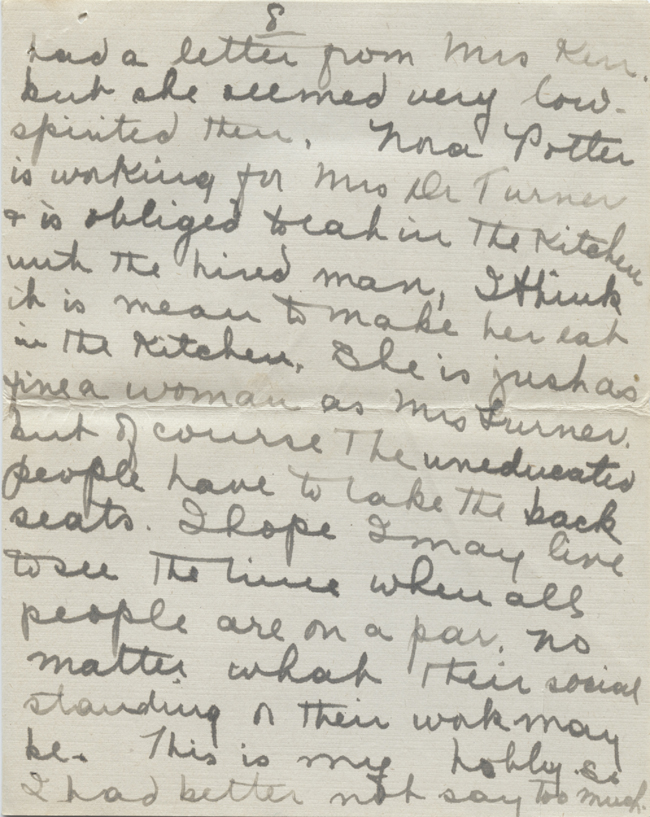 8
had a letter from Mrs Kerr.
but she seemed very low-
spirited then. Nora Potter
is working for Mrs Dr Turner
& is obliged to eat in the Kitchen
with the hired man, I think
it is mean to make her eat
in the Kitchen. She is just as
fine a woman as Mrs Turner.
but of course the uneducated
people have to take the back
seats. I hope I may live
to see the time when all
people are on a par. no
matter what their social
standing or their work may
be. This is my hobby so
I had better not say too much.